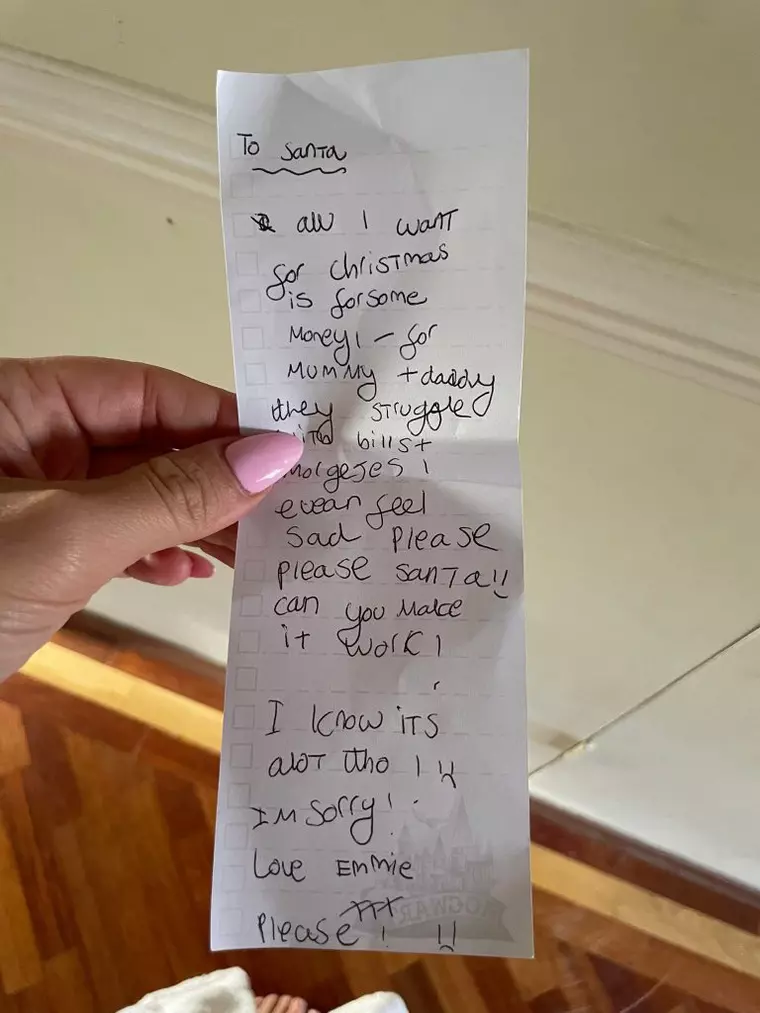 To Santa
all I want
for christmas
is forsome
Money! - for
Mummy + daddy
they struggle
with bills +
morgeses I
evean feel
sad please
please santa!!
can you make
it work!
I know its
alot tho !
Im sorry!
Love Emmie
Please !
HOGWAR